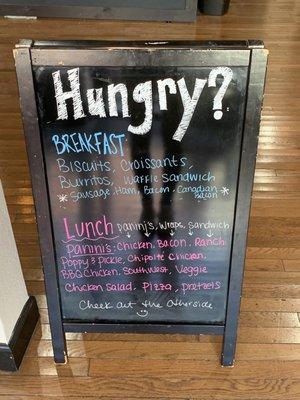 Hungry?
BREAKFAST
Biscuits, Croissants,
Burritos, Waffle Sandwich
*Sausage, Ham, Bacon, Canadian Bacon*
Lunch Panini's, Wraps, Sandwich
Panini's: Chicken, Bacon, Ranch
Poppy & Pickle, Chipotle Chicken,
BBQ Chicken, Southwest, Veggie
Chicken Salad, Pizza, Pretzels
Check out the Otherside